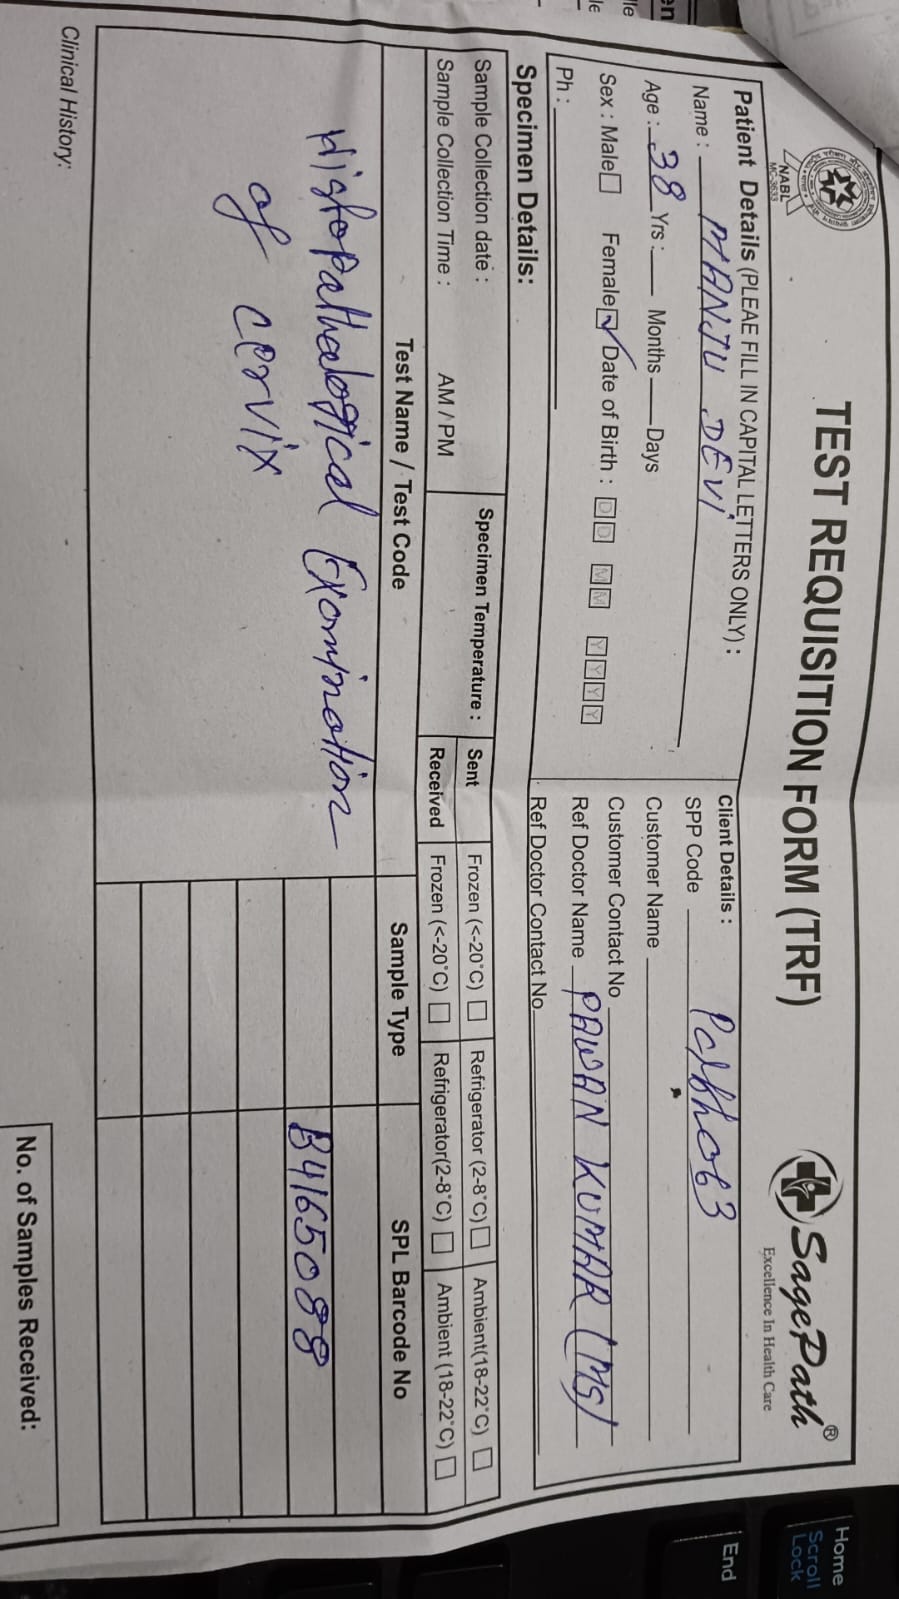 TEST REQUISITION FORM (TRF)
NABL
MC-3633
SagePath®
Excellence In Health Care
Patient Details (PLEAE FILL IN CAPITAL LETTERS ONLY) :
Name : MANJU DEVI
Age : 38 Yrs : Months Days
Sex : Male Female ✓ Date of Birth : D D M M Y Y Y Y
Ph :
Client Details :
SPP Code
Customer Name
Customer Contact No
Ref Doctor Name PAWAN KUMAR (MS)
Ref Doctor Contact No
Specimen Details:
Sample Collection date :
Sample Collection Time : AM / PM
Specimen Temperature :
Sent Frozen (<-20°C) Refrigerator (2-8°C) Ambient(18-22°C)
Received Frozen (<-20°C) Refrigerator(2-8°C) Ambient (18-22°C)
Test Name / Test Code Sample Type SPL Barcode No
Histopathological Examination B4165088
of cervix
Clinical History:
No. of Samples Received:
Home
Scroll
Lock
End